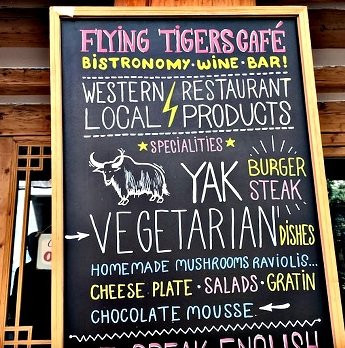 FLYING TIGERS CAFÉ
BISTRONOMY · WINE · BAR!
WESTERN RESTAURANT
LOCAL PRODUCTS
★ SPECIALITIES ★
YAK BURGER
STEAK
VEGETARIAN DISHES
HOMEMADE MUSHROOMS RAVIOLIS...
CHEESE PLATE · SALADS · GRATIN
CHOCOLATE MOUSSE
SPEAK ENGLISH